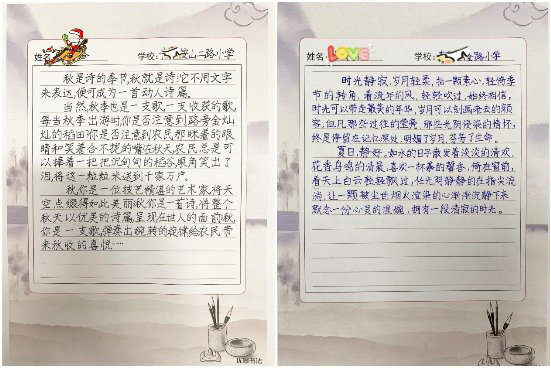 姓名
学校:
山二路小学
秋是诗的季节,秋就是诗!它不用文字
来表达,便可成为一首动人诗篇。
当然,秋季也是一支歌,一支收获的歌,
每当秋季出游时,你是否注意到路旁金灿
灿的稻田你是否注意到农民那眯着的眼
睛和笑着合不拢的嘴在秋天农民总是可
以捧着一把把沉甸甸的稻谷,眼角笑出了
泪,将这一粒粒米送到千家万户。
秋,你是一位技艺精湛的艺术家,将天
空点缀得如此美丽秋,你是一首诗,将整个
秋天以优美的诗篇呈现在世人的面前秋,
你是一支歌,弹奏出婉转的旋律给农民带
来秋收的喜悦……
姓名
LOVE
学校:
路小学
时光静寂,岁月轻柔,拈一颗素心,轻倚季
节的转角,看流年的风,轻轻吹过,始终相信,
时光可以带走最美的年华,岁月可以刻画老去的颜
容,但凡那些过往的
终是停留在记忆深处,明媚了岁月,芬芳了生命。
夏日,静好。如水的日子散发着淡淡的清欢,
花香鸟鸣的清晨,喜欢一杯暮的馨香,倚在窗前,
看天上白云轻轻飘过,任光阴静静的在指尖流
淌,让一颗被尘世烟火渲染的心渐渐沉静下来
默念一份心灵的温婉,拥有一段清寂的时光。